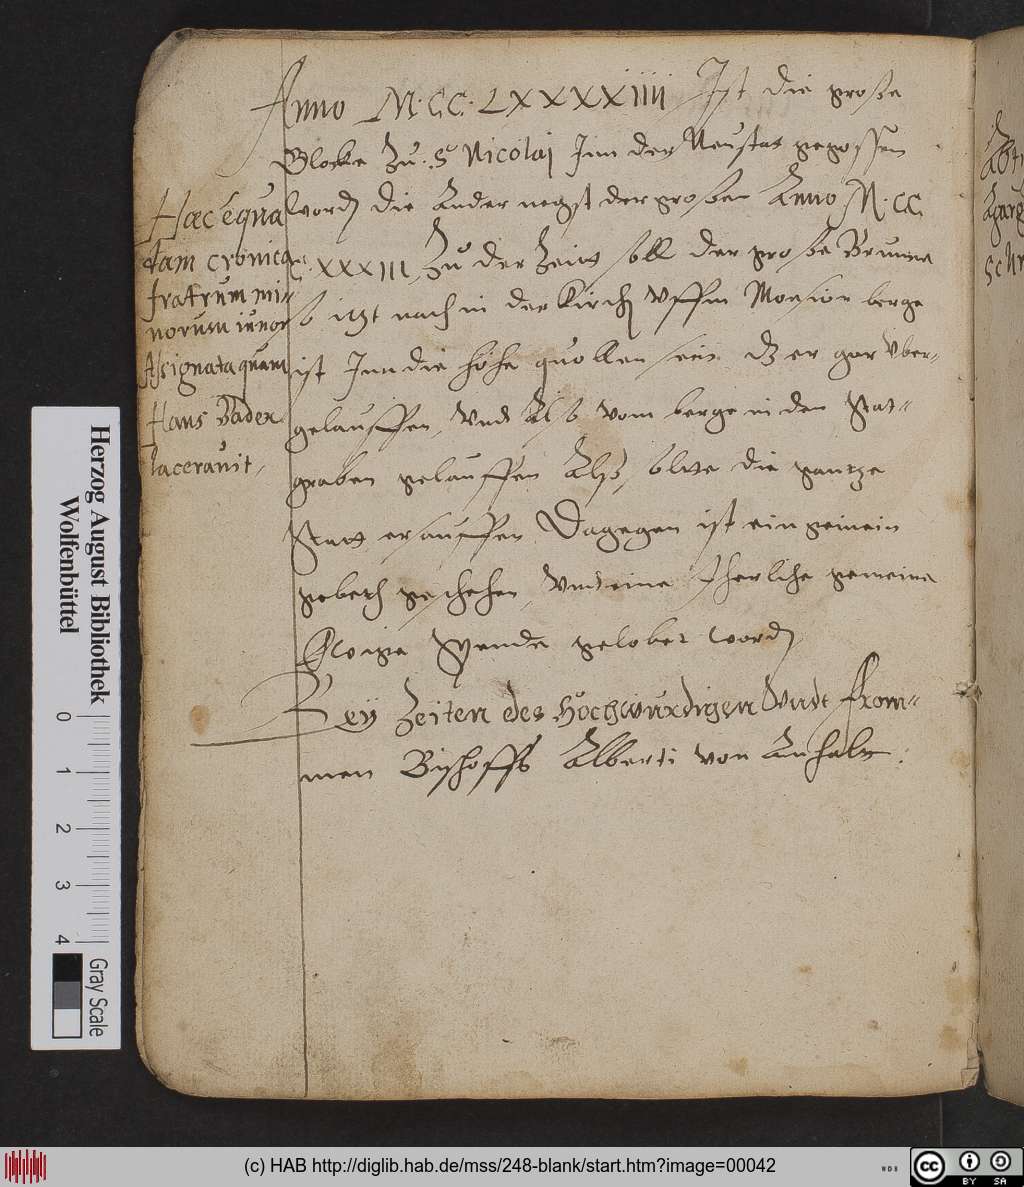 Anno M.CC.LXXXXIIII Ist die große
Glocke Zu S Nicolaj Inn der Neustat gegossen
word die Ander negst der großen Anno M.CC.
C.XXXIII, Zu der Zeitt soll der große Brunne
so itzt nach in der Kirch Vffm berge
ist Inn die höhe quollen sein dz er gar Vber-
gelauffen, Vnd Also vom berge in den Stat-
graben gelauffen Alß solte die gantze
Statt ersauffen Dagegen ist ein gemein
gebeth geschehen, Vnd eine Jherliche gemeine
Ewige Spende gelobet word
Bey Zeiten des Hochwürdigen Vndt From-
men Bischoffs Alberti von Anhalt:
Hæc equa
tam cronica
fratrum mi-
norum iunor
Assignata quam
Hans Bader
laceravit,
Herzog August Bibliothek
Wolfenbüttel
0 1 2 3 4
Gray Scale
(c) HAB http://diglib.hab.de/mss/248-blank/start.htm?image=00042
WDB
cc
BY SA